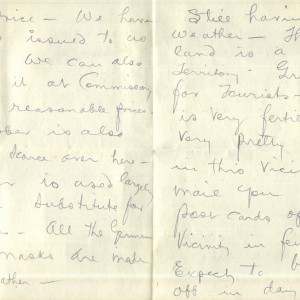 rice - We have
issued to us
We can also
it at Commissary
reasonable price -
ber is also
scarce over here -
is used largely
substitute for
- All the German
masks are made
ather -
Still having
weather - Th
land is a
Territory - Gr
for Tourists -
is very ferti
Very pretty
in this Vicin
mail you
post cards of
Vicinity in fe
Expect to b
off in day